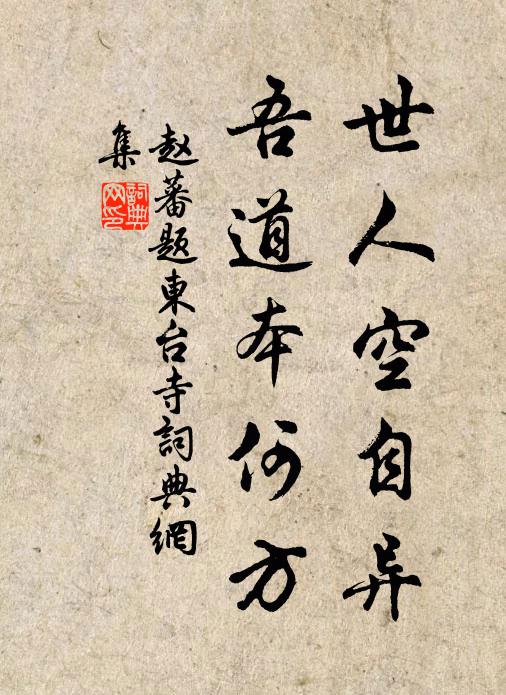 世人空自异
吾道本何方
赵蕃题東台寺詞典網
集
詞典
网印